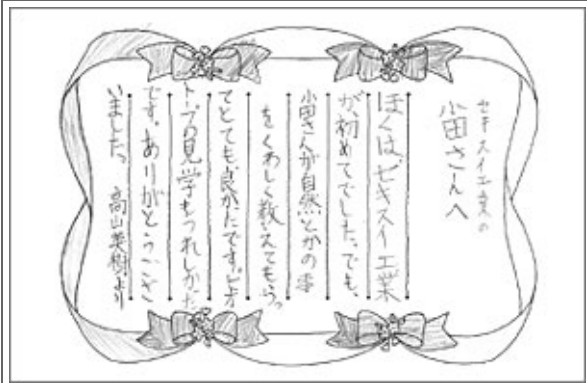 セキスイ工業の
小田さんへ
ぼくは、セキスイ工業
が、初めてでした。でも、
小田さんが自然とかの事
をくわしく教えてもらっ
てとても良かたです。ビオ
トープの見学もうれしかた
です。ありがとうござ
いました。 高山英樹より